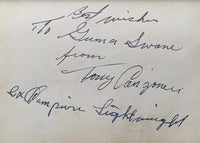 Best wishes
To Guma Swane
from
Tony Canzoneri
ex Champion Lightweight